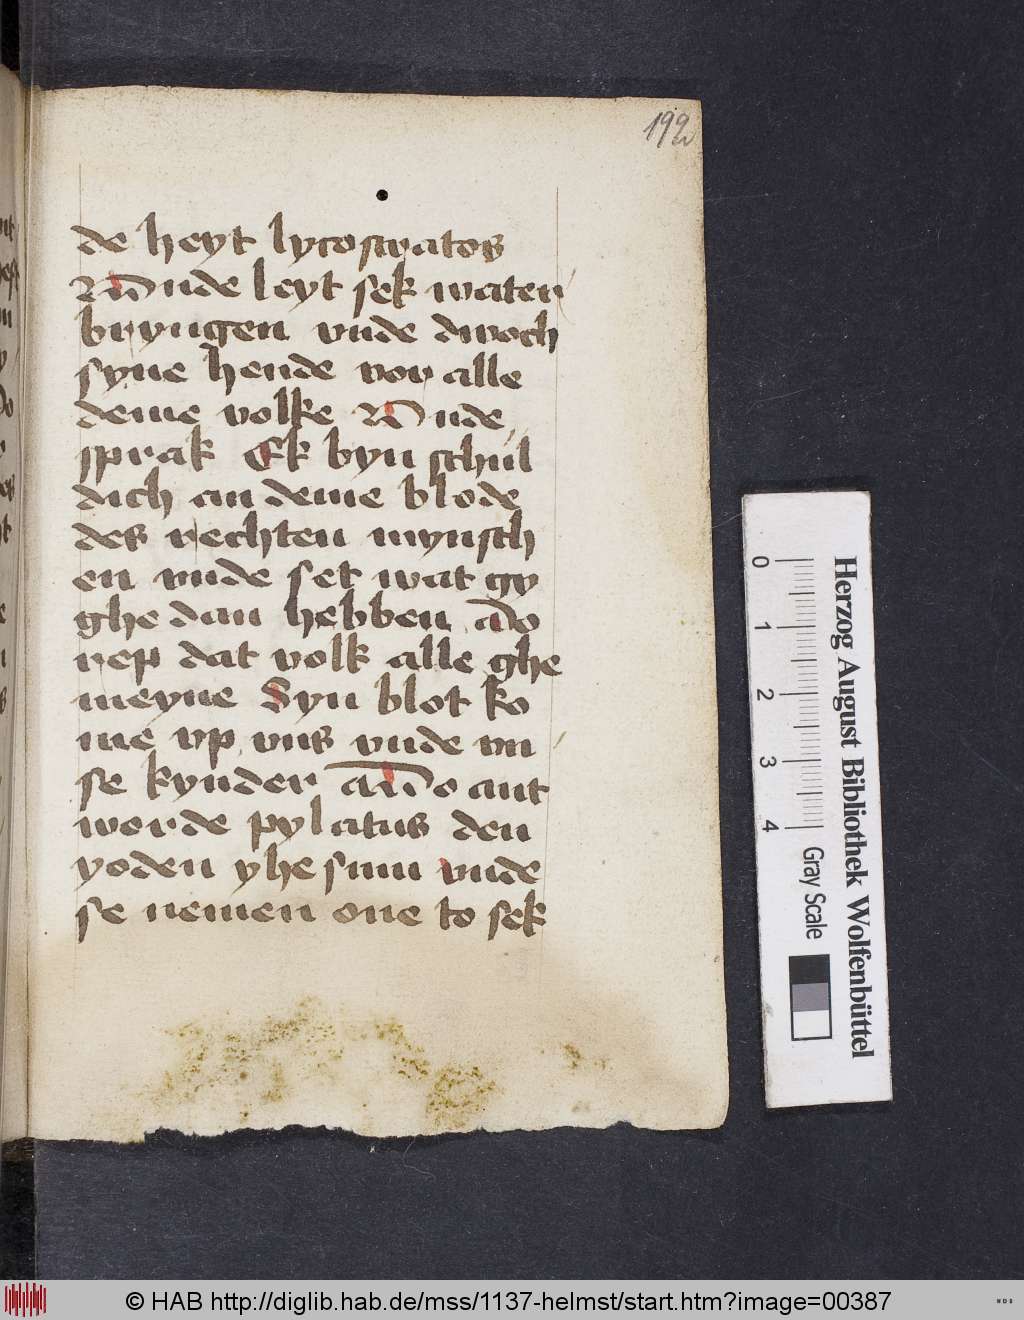 192
de heyt lycostratos
Vnde leyt sek water
bryngen vnde dwoch
syne hende vor alle
deme volke Vnde
sprak Ek byn schul
dich an deme blode
des rechten mynsch
en vnde set wat gy
ghe dan hebben do
rep dat volk alle ghe
meyne Syn blot ko
me vp vns vnde vn
se kynder do ant
worde pylatus den
yoden yhesum vnde
se nemen one to sek
Herzog August Bibliothek Wolfenbüttel
0 1 2 3 4
Gray Scale
© HAB http://diglib.hab.de/mss/1137-helmst/start.htm?image=00387